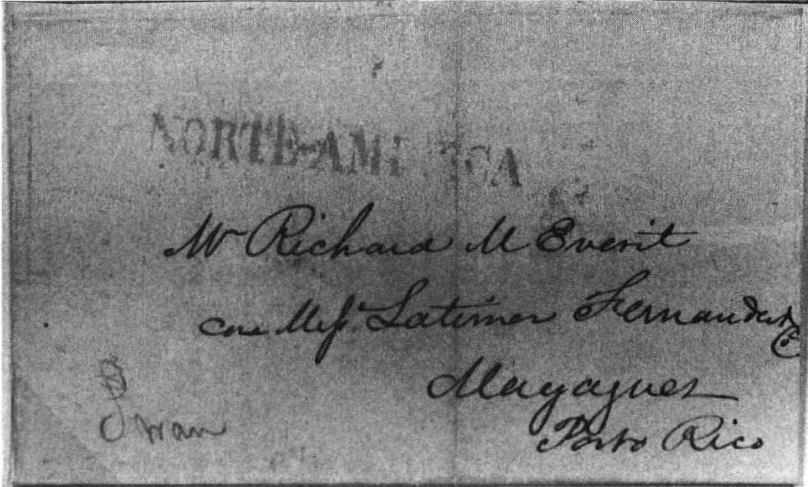 NORTE-AMERICA
Mr Richard M Everit
care Messr Latimer Fernandez & Co
Mayaguez
Porto Rico
Swan